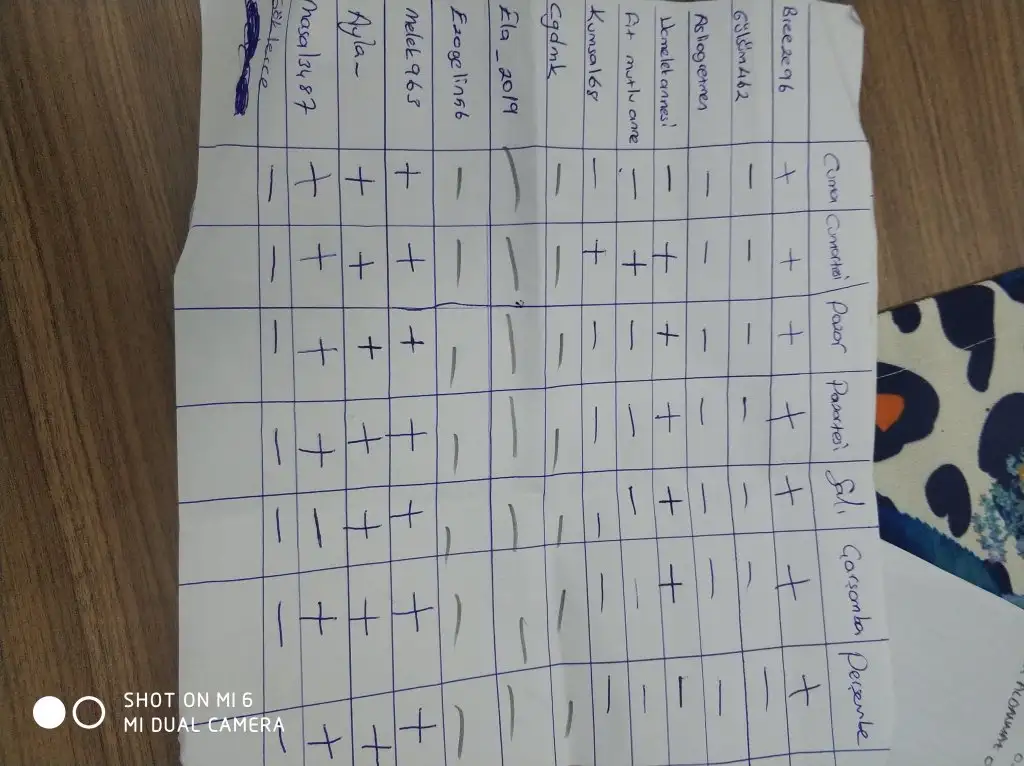 Cuma Cumartesi Pazar Pazartesi Salı Çarşamba Perşembe
Breeze96 + + + + + + +
Gülsüm442 - - - - - - -
Aslıogremen - - - - - - -
Uc melekannesi - + + + + + -
Fit mutlu anne - + - - - - -
Kumsal68 - + - - - - -
Cgdmk - - - - - - -
Ela_2019 - - - - - - -
Ezogelin56 - - - - - - -
Melek963 + + + + + + +
Ayla~ + + + + + + +
Masal3487 + + + + - + +
- - - - - - -
SHOT ON MI 6
MI DUAL CAMERA